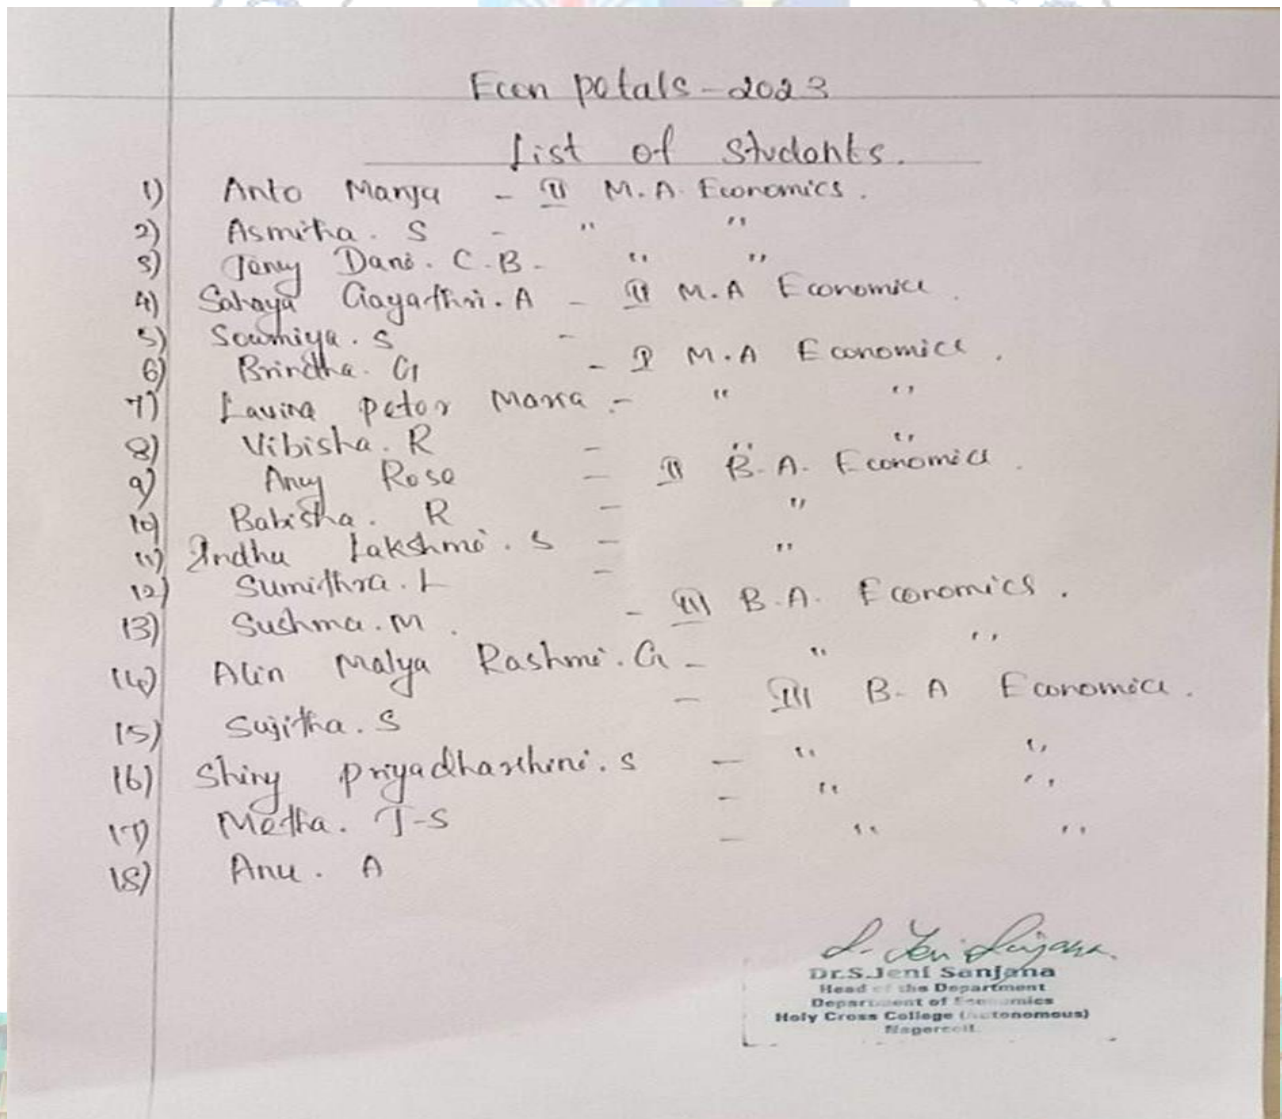 Econ petals - 2023
List of Students.
1) Anto Manja - II M.A. Economics.
2) Asmitha. S - " "
3) Jeny Dani. C.B. - " "
4) Sahaya Gayathri. A - II M.A Economics.
5) Sowmiya. S -
6) Brindha. G - I M.A Economics.
7) Lavina peter Maria - " "
8) Vibisha. R - " "
9) Any Rose - II B.A. Economics.
10) Babisha. R - "
11) Indhu Lakshmi. S - "
12) Sumithra. L -
13) Sushma. M. - III B.A. Economics.
14) Alin Malya Rashmi. G - " "
15) Sujitha. S - III B.A Economics.
16) Shiny priyadharshini. S - " "
17) Metha. T-S - " "
18) Anu. A - " "
S. Jeni Sanjana
Dr.S.Jeni Sanjana
Head of the Department
Department of Economics
Holy Cross College (Autonomous)
Nagercoil.